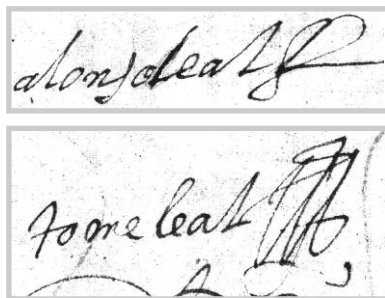 alonso leal
tome leal